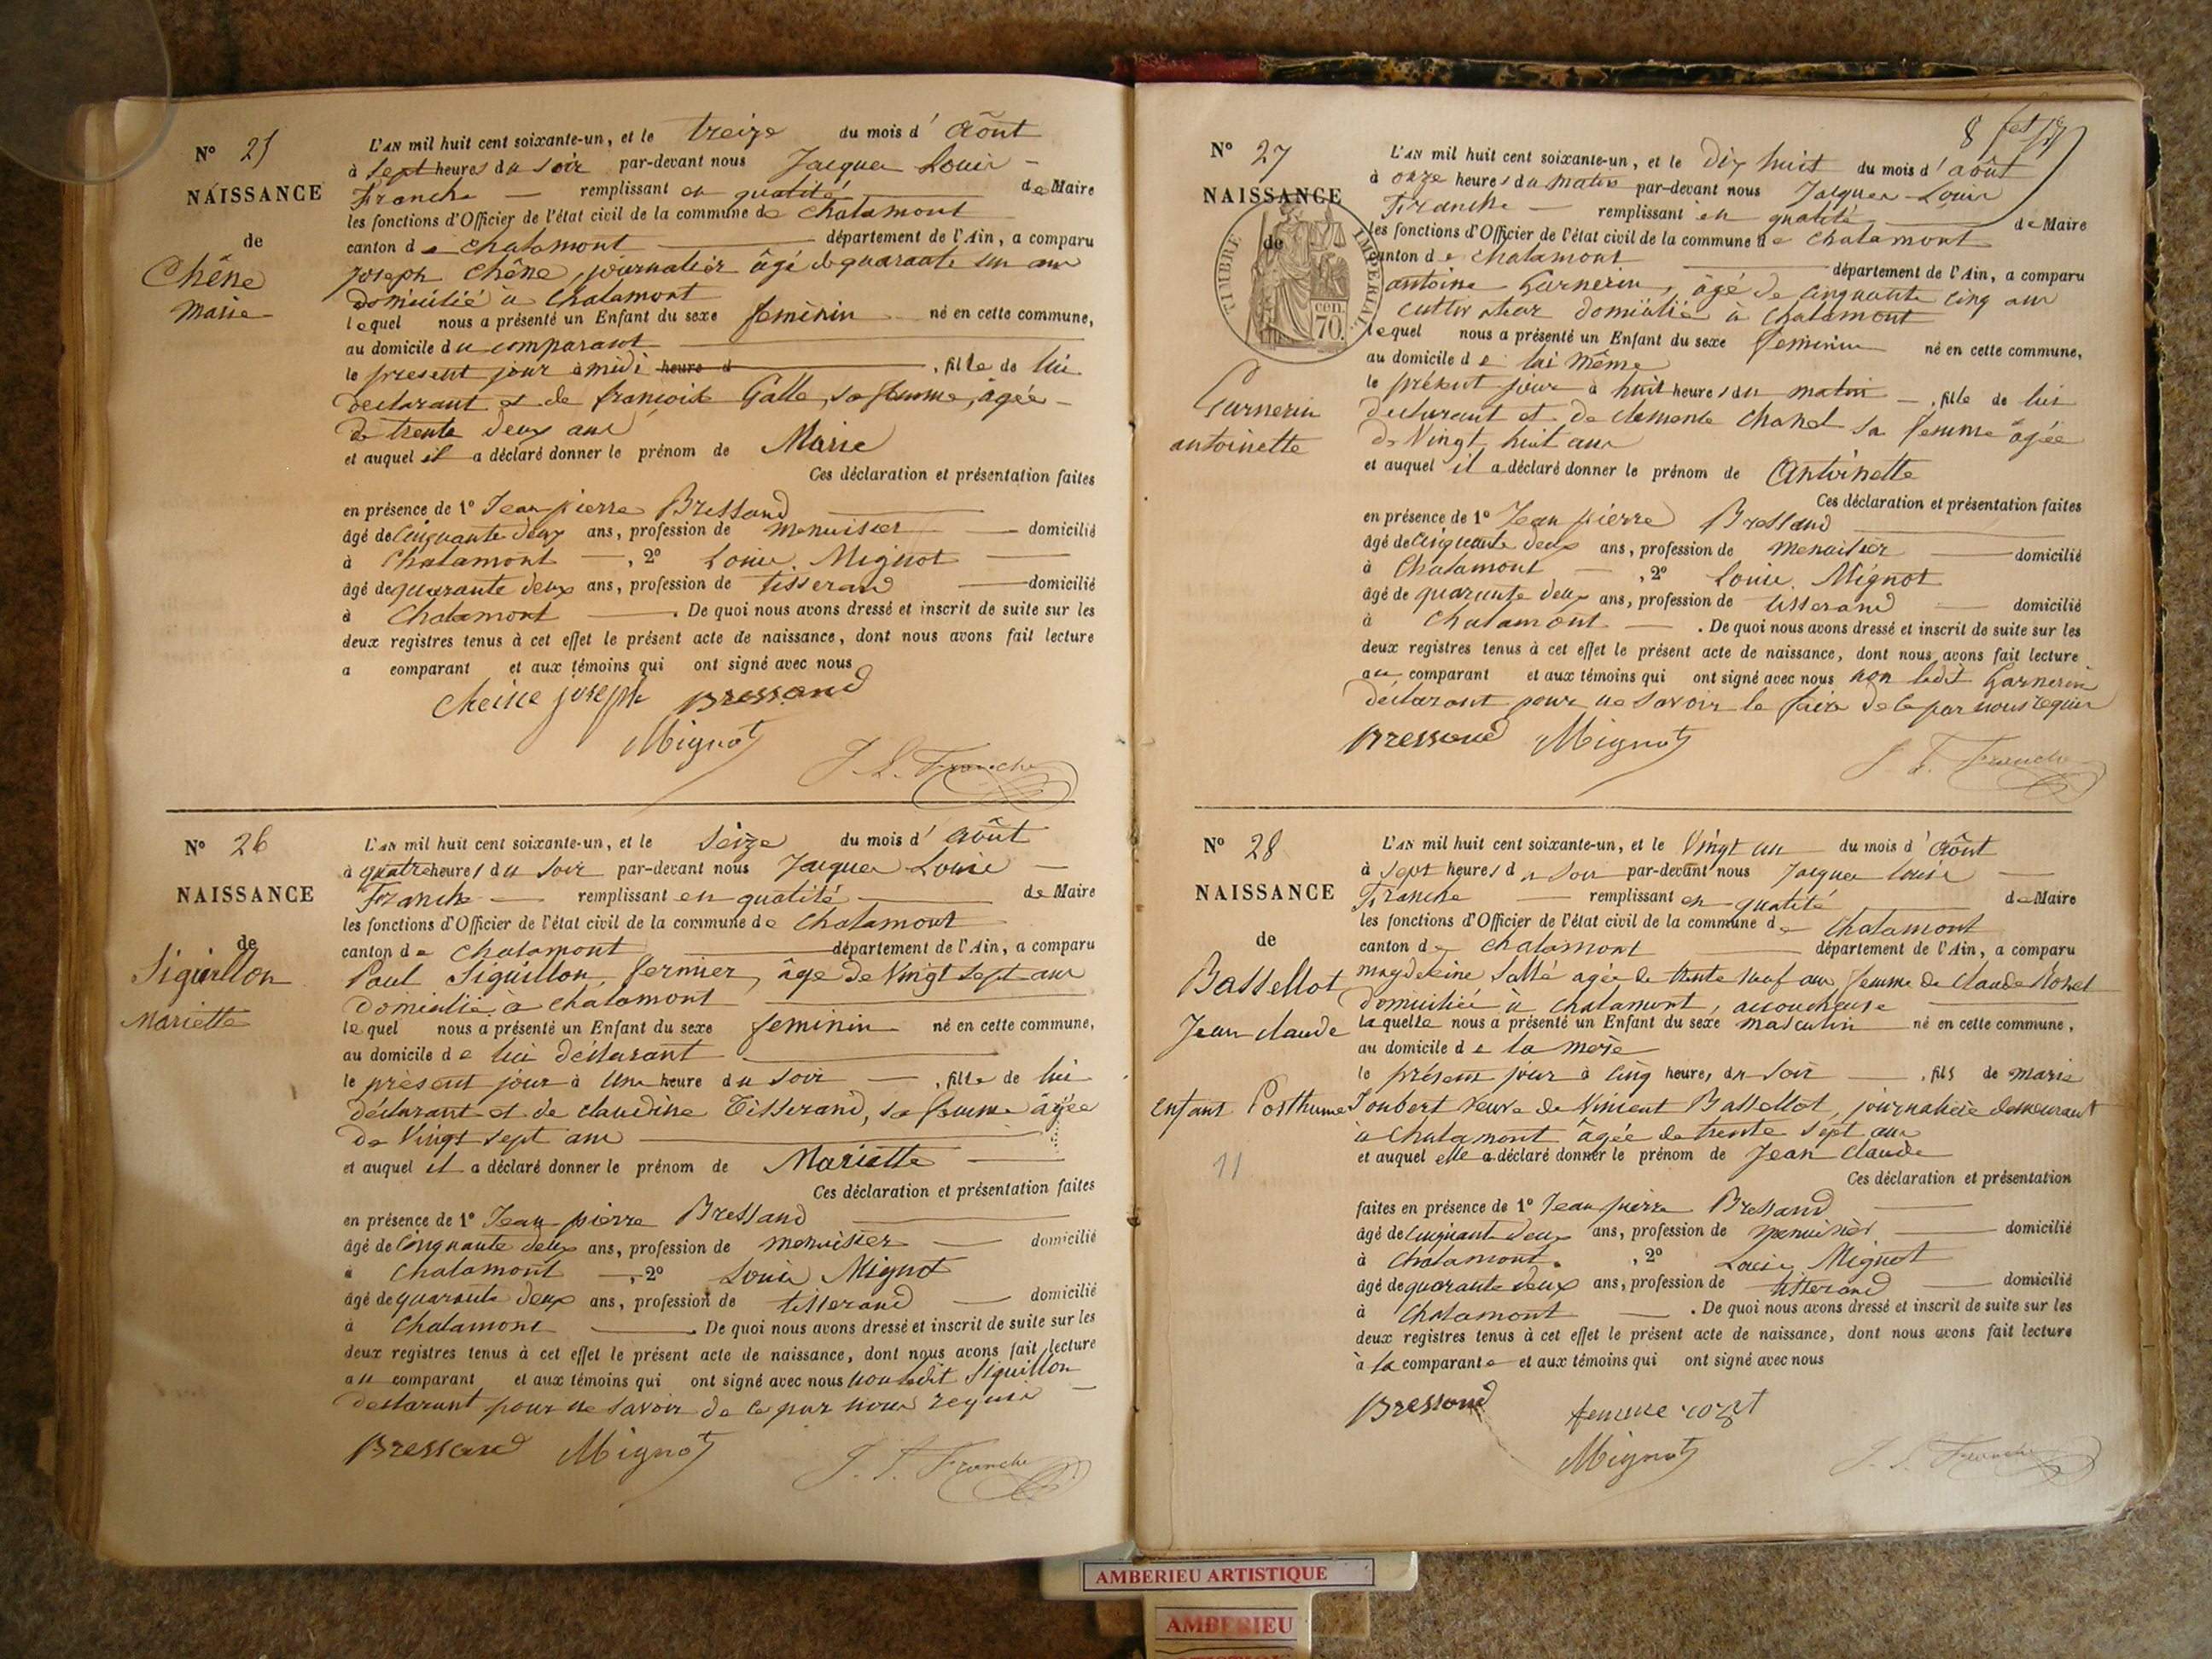 N° 25
NAISSANCE
de
Chêne
Marie
L'AN mil huit cent soixante-un, et le treize du mois d' Août
à sept heures du soir par-devant nous Jacques Louis
Franche remplissant en qualité de Maire
les fonctions d'Officier de l'état civil de la commune de Chalamont
canton de Chalamont département de l'Ain, a comparu
joseph Chêne, journalier âgé de quarante un ans
domicilié à Chalamont
lequel nous a présenté un Enfant du sexe feminin né en cette commune,
au domicile du comparant
le présent jour à midi heure d , fille de lui
declarant et de françoise Galle, sa femme, agée
de trente deux ans
et auquel il a déclaré donner le prénom de Marie
Ces déclaration et présentation faites
en présence de 1° Jean pierre Bressand
âgé de Cinquante deux ans, profession de menuisier domicilié
à Chalamont , 2° Louis Mignot
âgé de quarante deux ans, profession de tisserand domicilié
à Chalamont . De quoi nous avons dressé et inscrit de suite sur les
deux registres tenus à cet effet le présent acte de naissance, dont nous avons fait lecture
a comparant et aux témoins qui ont signé avec nous
Cheine joseph Bressand
Mignot
J. L. Franche
N° 26
NAISSANCE
de
Siguillon
Mariette
L'AN mil huit cent soixante-un, et le Seize du mois d' Août
à quatre heures du soir par-devant nous Jacques Louis
Franche remplissant en qualité de Maire
les fonctions d'Officier de l'état civil de la commune de Chalamont
canton de Chalamont département de l'Ain, a comparu
Paul Siguillon, fermier, âgé de Vingt sept ans
domicilié a Chalamont
lequel nous a présenté un Enfant du sexe feminin né en cette commune,
au domicile de lui déclarant
le présent jour à Une heure du soir , fille de lui
déclarant et de claudine Tisserand, sa femme âgée
de Vingt sept ans
et auquel il a déclaré donner le prénom de Mariette
Ces déclaration et présentation faites
en présence de 1° Jean pierre Bressand
âgé de Cinquante deux ans, profession de menuisier domicilié
à Chalamont , 2° Louis Mignot
âgé de quarante deux ans, profession de tisserand domicilié
à Chalamont . De quoi nous avons dressé et inscrit de suite sur les
deux registres tenus à cet effet le présent acte de naissance, dont nous avons fait lecture
au comparant et aux témoins qui ont signé avec nous non ledit Siguillon
declarant pour ne savoir de ce par nous requis
Bressand Mignot
J. L. Franche
8
N° 27
NAISSANCE
de
TIMBRE IMPERIAL
70 cen.
Garnerin
antoinette
L'AN mil huit cent soixante-un, et le Dix huit du mois d' août
à onze heures du matin par-devant nous Jacques Louis
Franche remplissant en qualité de Maire
les fonctions d'Officier de l'état civil de la commune de Chalamont
canton de Chalamont département de l'Ain, a comparu
antoine Garnerin, âgé de Cinquante cinq ans
cultivateur domicilié à Chalamont
lequel nous a présenté un Enfant du sexe feminin né en cette commune,
au domicile de lui même
le présent jour à huit heures du matin , fille de lui
declarant et de clemence Chanel sa femme agée
de Vingt huit ans
et auquel il a déclaré donner le prénom de Antoinette
Ces déclaration et présentation faites
en présence de 1° Jean pierre Bressand
âgé de Cinquante deux ans, profession de menuisier domicilié
à Chalamont , 2° Louis Mignot
âgé de quarante deux ans, profession de tisserand domicilié
à Chalamont . De quoi nous avons dressé et inscrit de suite sur les
deux registres tenus à cet effet le présent acte de naissance, dont nous avons fait lecture
au comparant et aux témoins qui ont signé avec nous non ledit Garnerin
déclarant pour ne savoir le faire de ce par nous requis
Bressand Mignot
J. L. Franche
N° 28
NAISSANCE
de
Bassellot
Jean claude
enfant Posthume
11
L'AN mil huit cent soixante-un, et le Vingt un du mois d' Août
à sept heures du soir par-devant nous Jacques Louis
Franche remplissant en qualité de Maire
les fonctions d'Officier de l'état civil de la commune de Chalamont
canton de Chalamont département de l'Ain, a comparu
magdeleine Sallé agée de trente neuf ans femme de claude
domiciliée à Chalamont, accoucheuse
laquelle nous a présenté un Enfant du sexe masculin né en cette commune,
au domicile de la mère
le présent jour à Cinq heures du soir , fils de marie
Joubert veuve de Vincent Bassellot, journalière demeurant
à Chalamont âgée de trente sept ans
et auquel elle a déclaré donner le prénom de Jean Claude
Ces déclaration et présentation
faites en présence de 1° Jean pierre Bressand
âgé de Cinquante deux ans, profession de menuisier domicilié
à Chalamont , 2° Louis Mignot
âgé de quarante deux ans, profession de tisserand domicilié
à Chalamont . De quoi nous avons dressé et inscrit de suite sur les
deux registres tenus à cet effet le présent acte de naissance, dont nous avons fait lecture
à la comparante et aux témoins qui ont signé avec nous
Bressand femme rozet
Mignot
J. L. Franche
AMBERIEU ARTISTIQUE
AMBERIEU